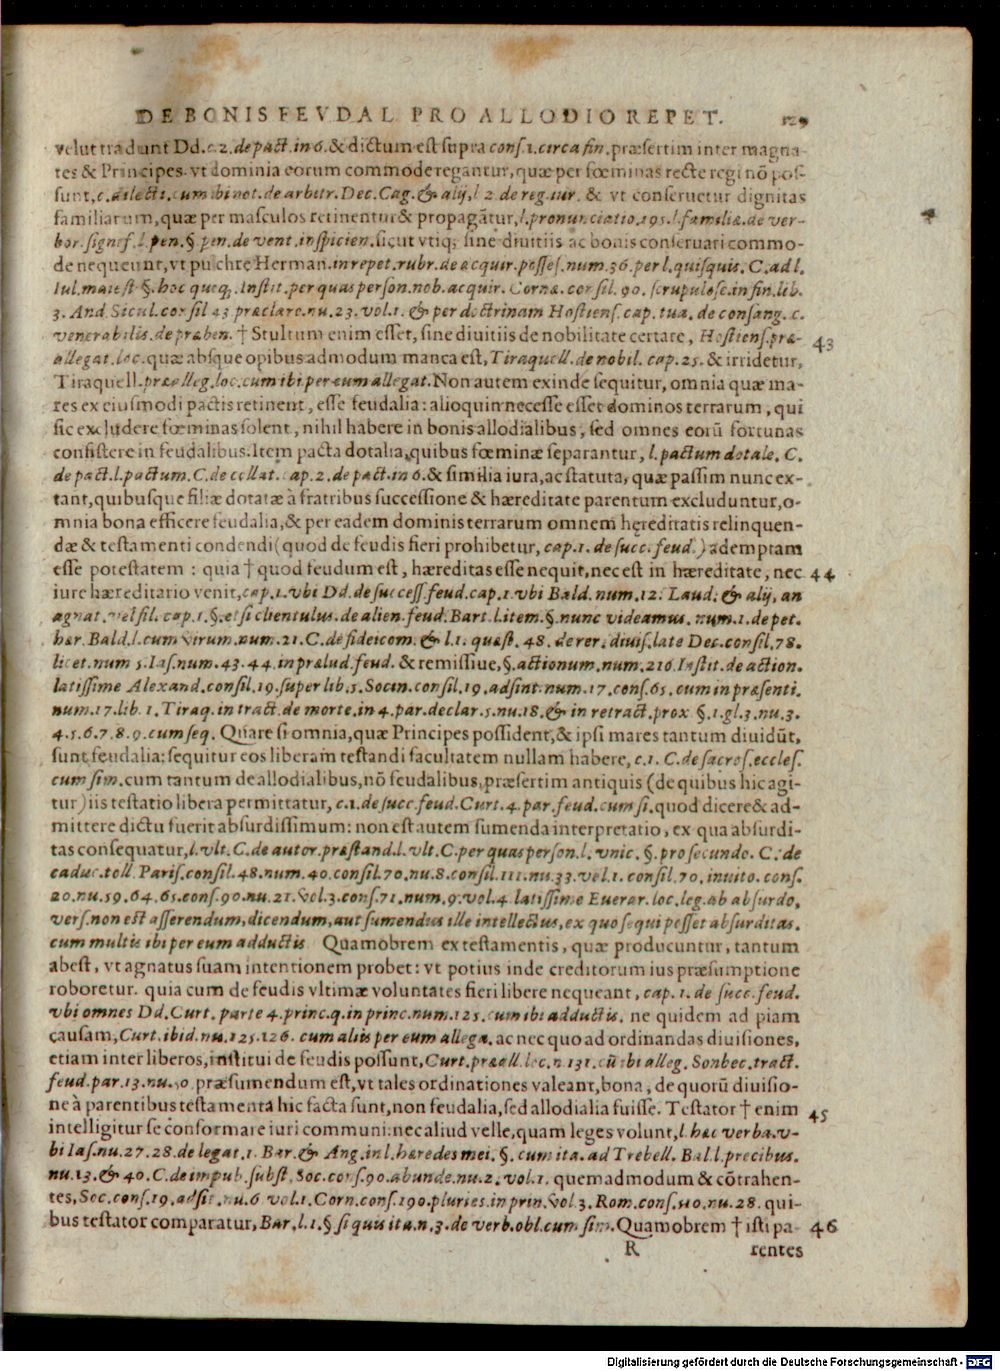 DE BONIS FEVDAL PRO ALLODIO REPET. 129
velut tradunt Dd. c. 2. de pact. in 6. & dictum est supra cons. 1. circa fin. præsertim inter magna-
tes & Principes. vt dominia eorum commode regantur, quæ per fœminas recte regi nõ pos-
sunt, c. dilecti. cum ibi not. de arbitr. Dec. Cag. & alij, l 2 de reg. iur. & vt conseruetur dignitas
familiarum, quæ per masculos retinentur & propagãtur, l. pronunciatio. 195. l. familiæ. de ver-
bor. signif. l. pen. § pen. de vent. inspicien. sicut vtiq; sine diuitiis ac bonis conseruari commo-
de nequeunt, vt pulchre Herman. in repet. rubr. de acquir. posses. num. 36. per l. quisquis. C. ad l.
Iul. maiest §. hoc quoq; Instit. per quas person. nob. acquir. Cornæ. consil. 90. scrupulose. in fin. lib.
3. And. Sicul. consil 43 præclare. nu. 23. vol. 1. & per doctrinam Hostiens. cap. tua. de consang. c.
venerabilis. de præben. † Stultum enim esset, sine diuitiis de nobilitate certare, Hostiens. præ- 43
allegat. loc. quæ absque opibus admodum manca est, Tiraquell. de nobil. cap. 25. & irridetur,
Tiraquell. præalleg. loc. cum ibi per eum allegat. Non autem exinde sequitur, omnia quæ ma-
res ex eiusmodi pactis retinent, esse feudalia: alioquin necesse esset dominos terrarum, qui
sic excludere fœminas solent, nihil habere in bonis allodialibus, sed omnes eorũ fortunas
consistere in feudalibus. Item pacta dotalia, quibus fœminæ separantur, l. pactum dotale. C.
de pact. l. pactum. C. de collat. cap. 2. de pact. in 6. & similia iura, ac statuta, quæ passim nunc ex-
tant, quibusque filiæ dotatæ à fratribus successione & hæreditate parentum excluduntur, o-
mnia bona efficere feudalia, & per eadem dominis terrarum omnem hęreditatis relinquen-
dæ & testamenti condendi (quod de feudis fieri prohibetur, cap. 1. de succ. feud.) ademptam
esse potestatem: quia † quod feudum est, hæreditas esse nequit, nec est in hæreditate, nec 44
iure hæreditario venit, cap. 1. vbi Dd. de success. feud. cap. 1. vbi Bald. num. 12. Laud. & alij, an
agnat. vel fil. cap. 1. §. et si clientulus. de alien. feud. Bart. l. item. §. nunc videamus. num. 1. de pet.
hær. Bald. l. cum virum. num. 21. C. de fideicom. & l. 1. quæst. 48. de rer. diuis. late Dec. consil. 78.
licet. num 5. Ias. num. 43. 44. in prælud. feud. & remissiue, §. actionum, num. 216. Instit. de action.
latissime Alexand. consil. 19. super lib. 5. Socin. consil. 19. adsint. num. 17. cons. 65. cum in præsenti.
num. 17. lib. 1. Tiraq. in tract. de morte, in 4. par. declar. 5. nu. 18. & in retract. prox §. 1. gl. 3. nu. 3.
4. 5. 6. 7. 8. 9. cum seq. Quare si omnia, quæ Principes possident, & ipsi mares tantum diuidũt,
sunt feudalia: sequitur eos liberam testandi facultatem nullam habere, c. 1. C. de sacros. eccles.
cum sim. cum tantum de allodialibus, nõ feudalibus, præsertim antiquis (de quibus hic agi-
tur) iis testatio libera permittatur, c. 1. de succ. feud. Curt. 4. par. feud. cum si. quod dicere & ad-
mittere dictu fuerit absurdissimum: non est autem sumenda interpretatio, ex qua absurdi-
tas consequatur, l. vlt. C. de autor. præstand. l. vlt. C. per quas person. l. vnic. §. pro secundo. C. de
caduc. toll. Paris. consil. 48. num. 40. consil. 70. nu. 8. consil. 111. nu. 33. vol. 1. consil. 70. inuito. cons.
20. nu. 59. 64. 65. cons. 90. nu. 21. Vol. 3. cons. 71. num. 9. vol. 4 latissime Euerar. loc. leg. ab absurdo,
vers. non est asserendum, dicendum, aut sumendus ille intellectus, ex quo sequi posset absurditas.
cum multis ibi per eum adductis Quamobrem ex testamentis, quæ producuntur, tantum
abest, vt agnatus suam intentionem probet: vt potius inde creditorum ius præsumptione
roboretur. quia cum de feudis vltimæ voluntates fieri libere nequeant, cap. 1. de succ. feud.
vbi omnes Dd. Curt. parte 4. princ. q. in princ. num. 125. cum ibi adductis. ne quidem ad piam
causam, Curt. ibid. nu. 125. 126. cum aliis per eum allega. ac nec quo ad ordinandas diuisiones,
etiam inter liberos, institui de feudis possunt, Curt. præall. loc. n 131. cũ ibi alleg. Sonbec. tract.
feud. par. 13. nu. 50 præsumendum est, vt tales ordinationes valeant, bona, de quorũ diuisio-
ne à parentibus testamenta hic facta sunt, non feudalia, sed allodialia fuisse. Testator † enim 45
intelligitur se conformare iuri communi: nec aliud velle, quam leges volunt, l. hæc verba. v-
bi Ias. nu. 27. 28. de legat. 1. Bar. & Ang. in l. hæredes mei. §. cum ita. ad Trebell. Bal. l. precibus.
nu. 13. & 40. C. de impub. subst. Soc. cons. 90. abunde. nu. 2. vol. 1. quemadmodum & cõtrahen-
tes, Soc. cons. 19. adsit. nu. 6 vol. 1. Corn. cons. 190. pluries. in prin. Vol 3. Rom. cons. 510. nu. 28. qui-
bus testator comparatur, Bar. l. 1. § si quis ita. n. 3. de verb. obl. cum sim. Quamobrem † isti pa- 46
R rentes
Digitalisierung gefördert durch die Deutsche Forschungsgemeinschaft - DFG